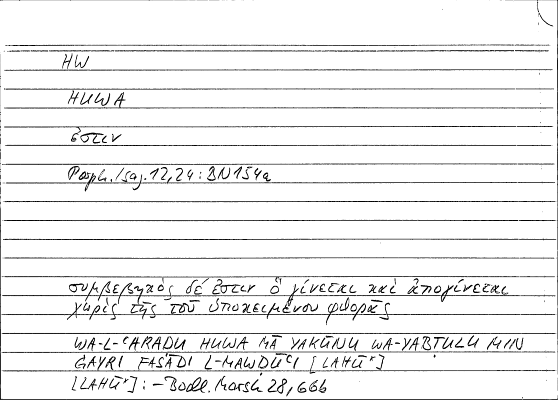 HW
HUWA
ἐστιν
Porph./sag. 12,24 : BN 154a
συμβεβηκός δέ ἐστιν ὃ γίνεται καὶ ἀπογίνεται
χωρὶς τῆς τοῦ ὑποκειμένου φθορᾶς
WA-L-ʿARAḌU HUWA MĀ YAKŪNU WA-YABṬULU MIN
ĠAYRI FASĀDI L-MAWḌŪʿI [LAHŪ*]
[LAHŪ*] : – Bodl. Marsh 28, 66b